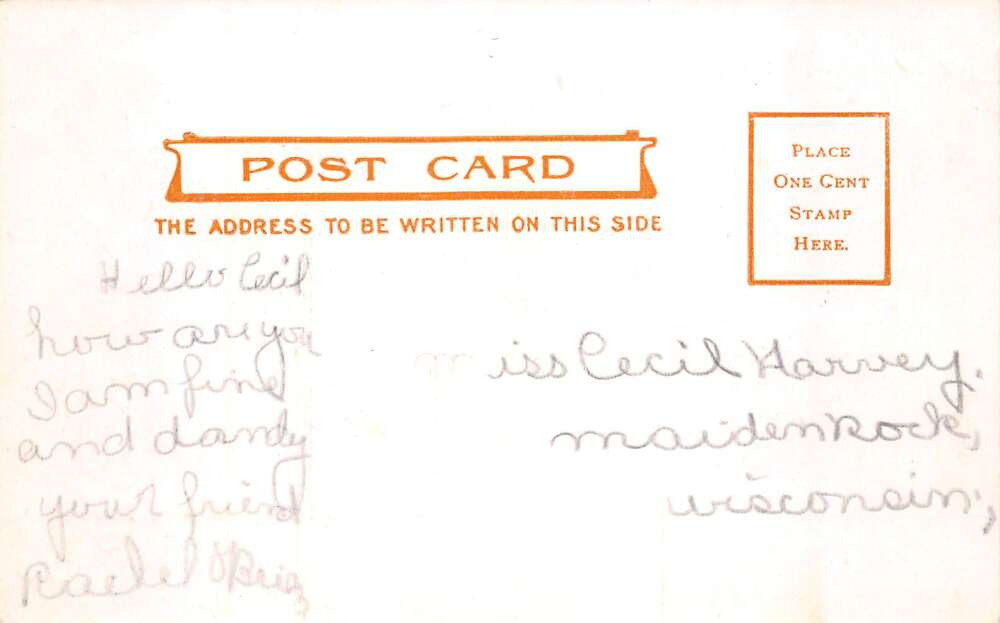 POST CARD
THE ADDRESS TO BE WRITTEN ON THIS SIDE
PLACE
ONE CENT
STAMP
HERE.
Hello Cecil
how are you
I am fine
and dandy
your friend
Rachel
miss Cecil Harvey.
maiden Rock,
wisconsin,